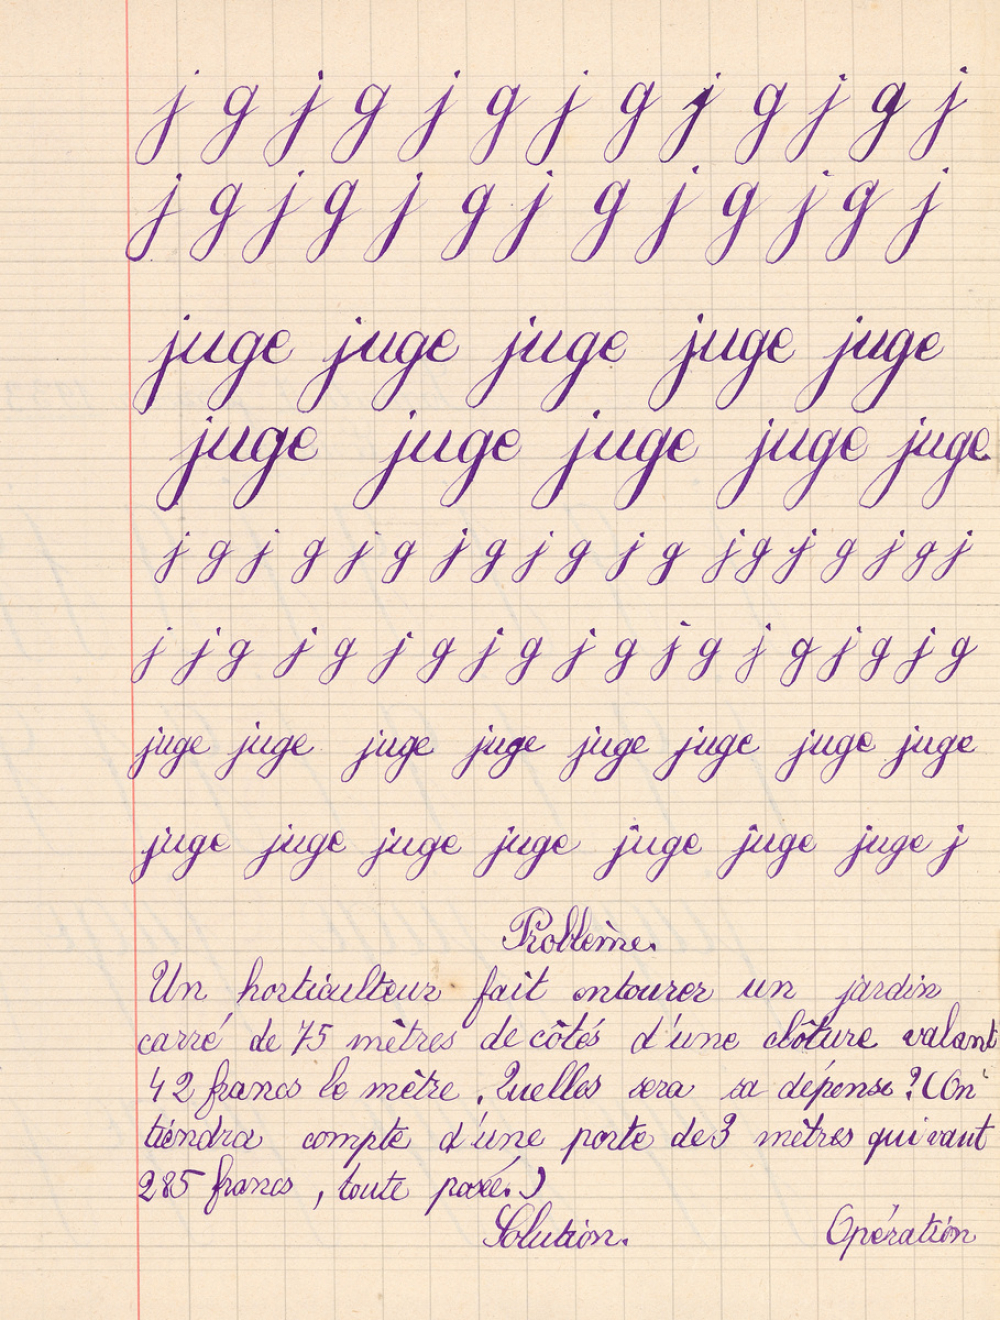 j g j g j g j g j g j g j
j g j g j g j g j g j g j
juge juge juge juge juge
juge juge juge juge juge.
j g j g j g j g j g j g j g j g j g j
j j g j g j g j g j g j g j g j g j g
juge juge juge juge juge juge juge juge
juge juge juge juge juge juge juge j
Problème.
Un horticulteur fait entourer un jardin
carré de 75 mètres de côtés d'une clôture valant
42 francs le mètre. Quelles sera sa dépense? (On
tiendra compte d'une porte de 3 mètres qui vaut
285 francs, toute posée.)
Solution. Opération